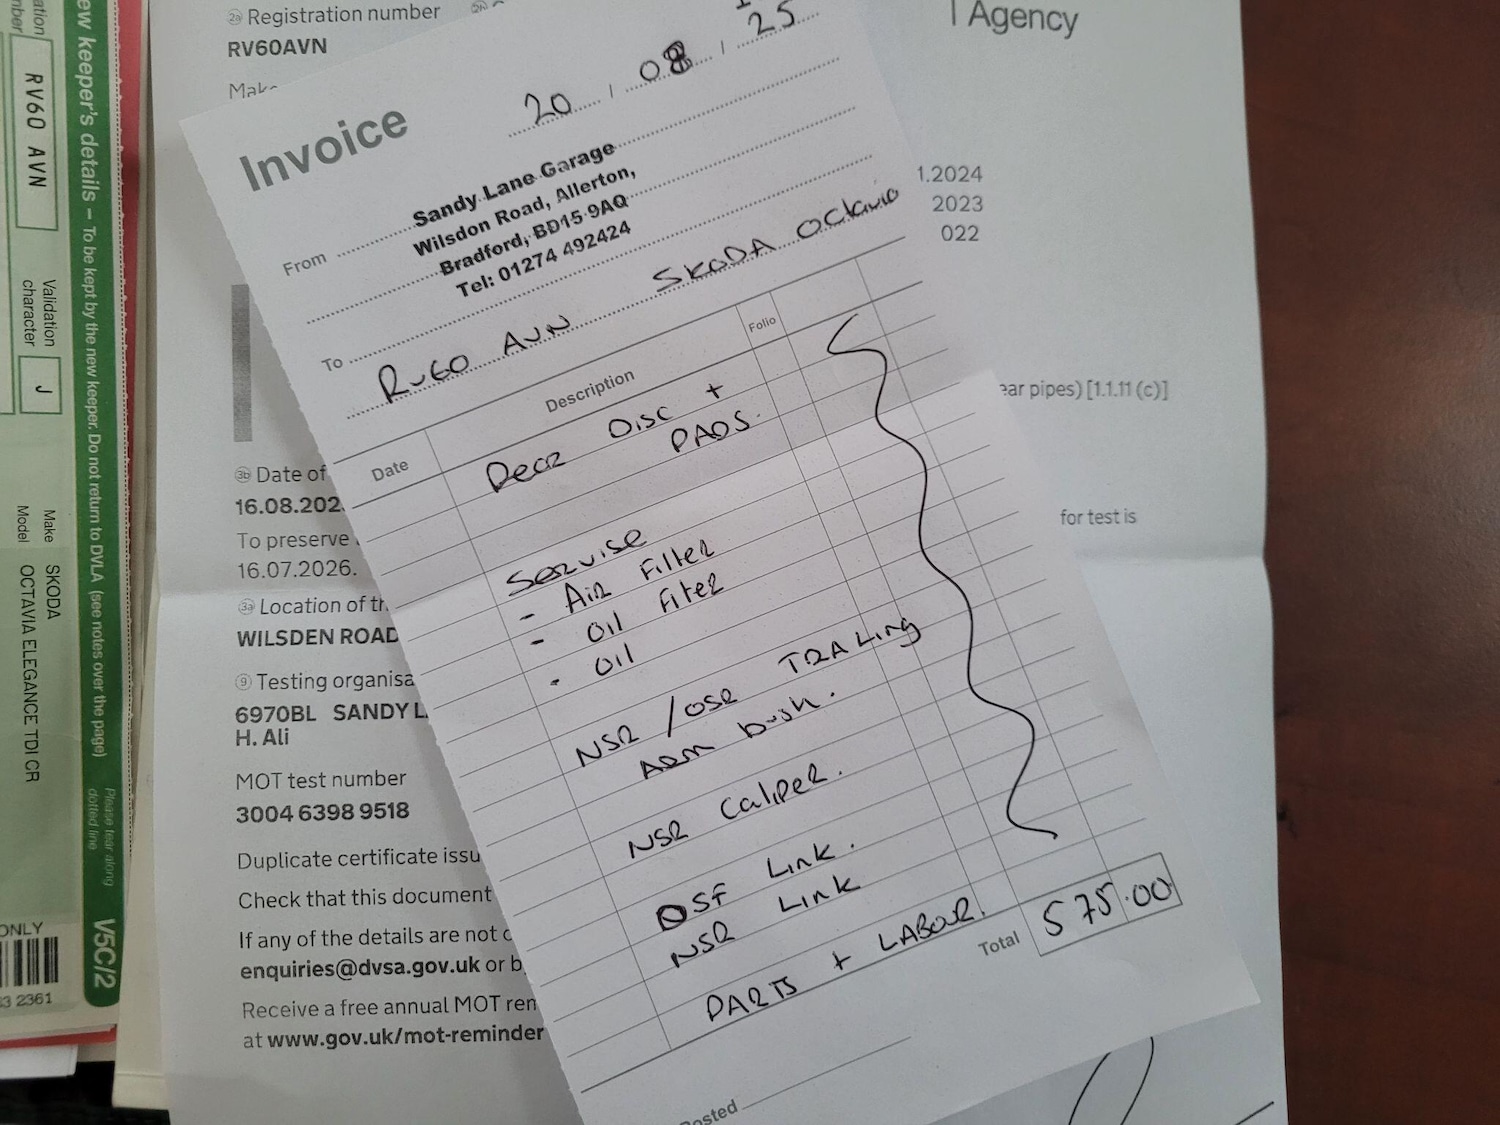 ew keeper's details – To be kept by the new keeper. Do not return to DVLA (see notes over the page)
Please tear along
dotted line
V5C/2
RV60 AVN
Validation
character
J
Make
SKODA
Model
OCTAVIA ELEGANCE TDI CR
ONLY
3 2361
2a Registration number
RV60AVN
Agency
1.2024
2023
022
ear pipes) [1.1.11 (c)]
for test is
3b Date of
16.08.202
To preserve
16.07.2026.
3a Location of th
WILSDEN ROAD
9 Testing organisa
6970BL SANDY L
H. Ali
MOT test number
3004 6398 9518
Duplicate certificate issu
Check that this document
If any of the details are not c
enquiries@dvsa.gov.uk or b
Receive a free annual MOT ren
at www.gov.uk/mot-reminder
Invoice
20 / 08 / 25
From
Sandy Lane Garage
Wilsdon Road, Allerton,
Bradford, BD15 9AQ
Tel: 01274 492424
To
RV60 AVN SKODA Octavia
Date Description Folio
Rear Disc +
PADS.
Servise
- Air Filter
- Oil Fiter
- Oil
NSR / OSR TRALing
ARM bush.
NSR Caliper.
OSF Link.
NSR Link
PARTS + LABOUR.
Total 575.00
osted